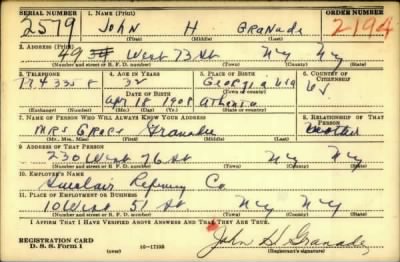 SERIAL NUMBER 1. NAME (Print) ORDER NUMBER
2579 John H Granade 2194
(First) (Middle) (Last)
2. ADDRESS (Print)
49 West 73 St NY NY
(Number and street or R. F. D. number) (Town) (County) (State)
3. TELEPHONE 4. AGE IN YEARS 5. PLACE OF BIRTH 6. COUNTRY OF CITIZENSHIP
32 Georgia USA US
DATE OF BIRTH (Town or county)
Apr 18 1908 Atlanta
(Exchange) (Number) (Mo.) (Day) (Yr.) (State or country)
7. NAME OF PERSON WHO WILL ALWAYS KNOW YOUR ADDRESS 8. RELATIONSHIP OF THAT PERSON
Mrs Grace Granade mother
(Mr., Mrs., Miss) (First) (Middle) (Last)
9. ADDRESS OF THAT PERSON
230 West 76 St NY NY
(Number and street or R. F. D. number) (Town) (County) (State)
10. EMPLOYER'S NAME
Sinclair Refining Co
11. PLACE OF EMPLOYMENT OR BUSINESS
10 West 51 St NY NY
(Number and street or R. F. D. number) (Town) (County) (State)
I AFFIRM THAT I HAVE VERIFIED ABOVE ANSWERS AND THAT THEY ARE TRUE.
REGISTRATION CARD
D. S. S. Form 1 16—17105 John H Granade
(over) (Registrant's signature)